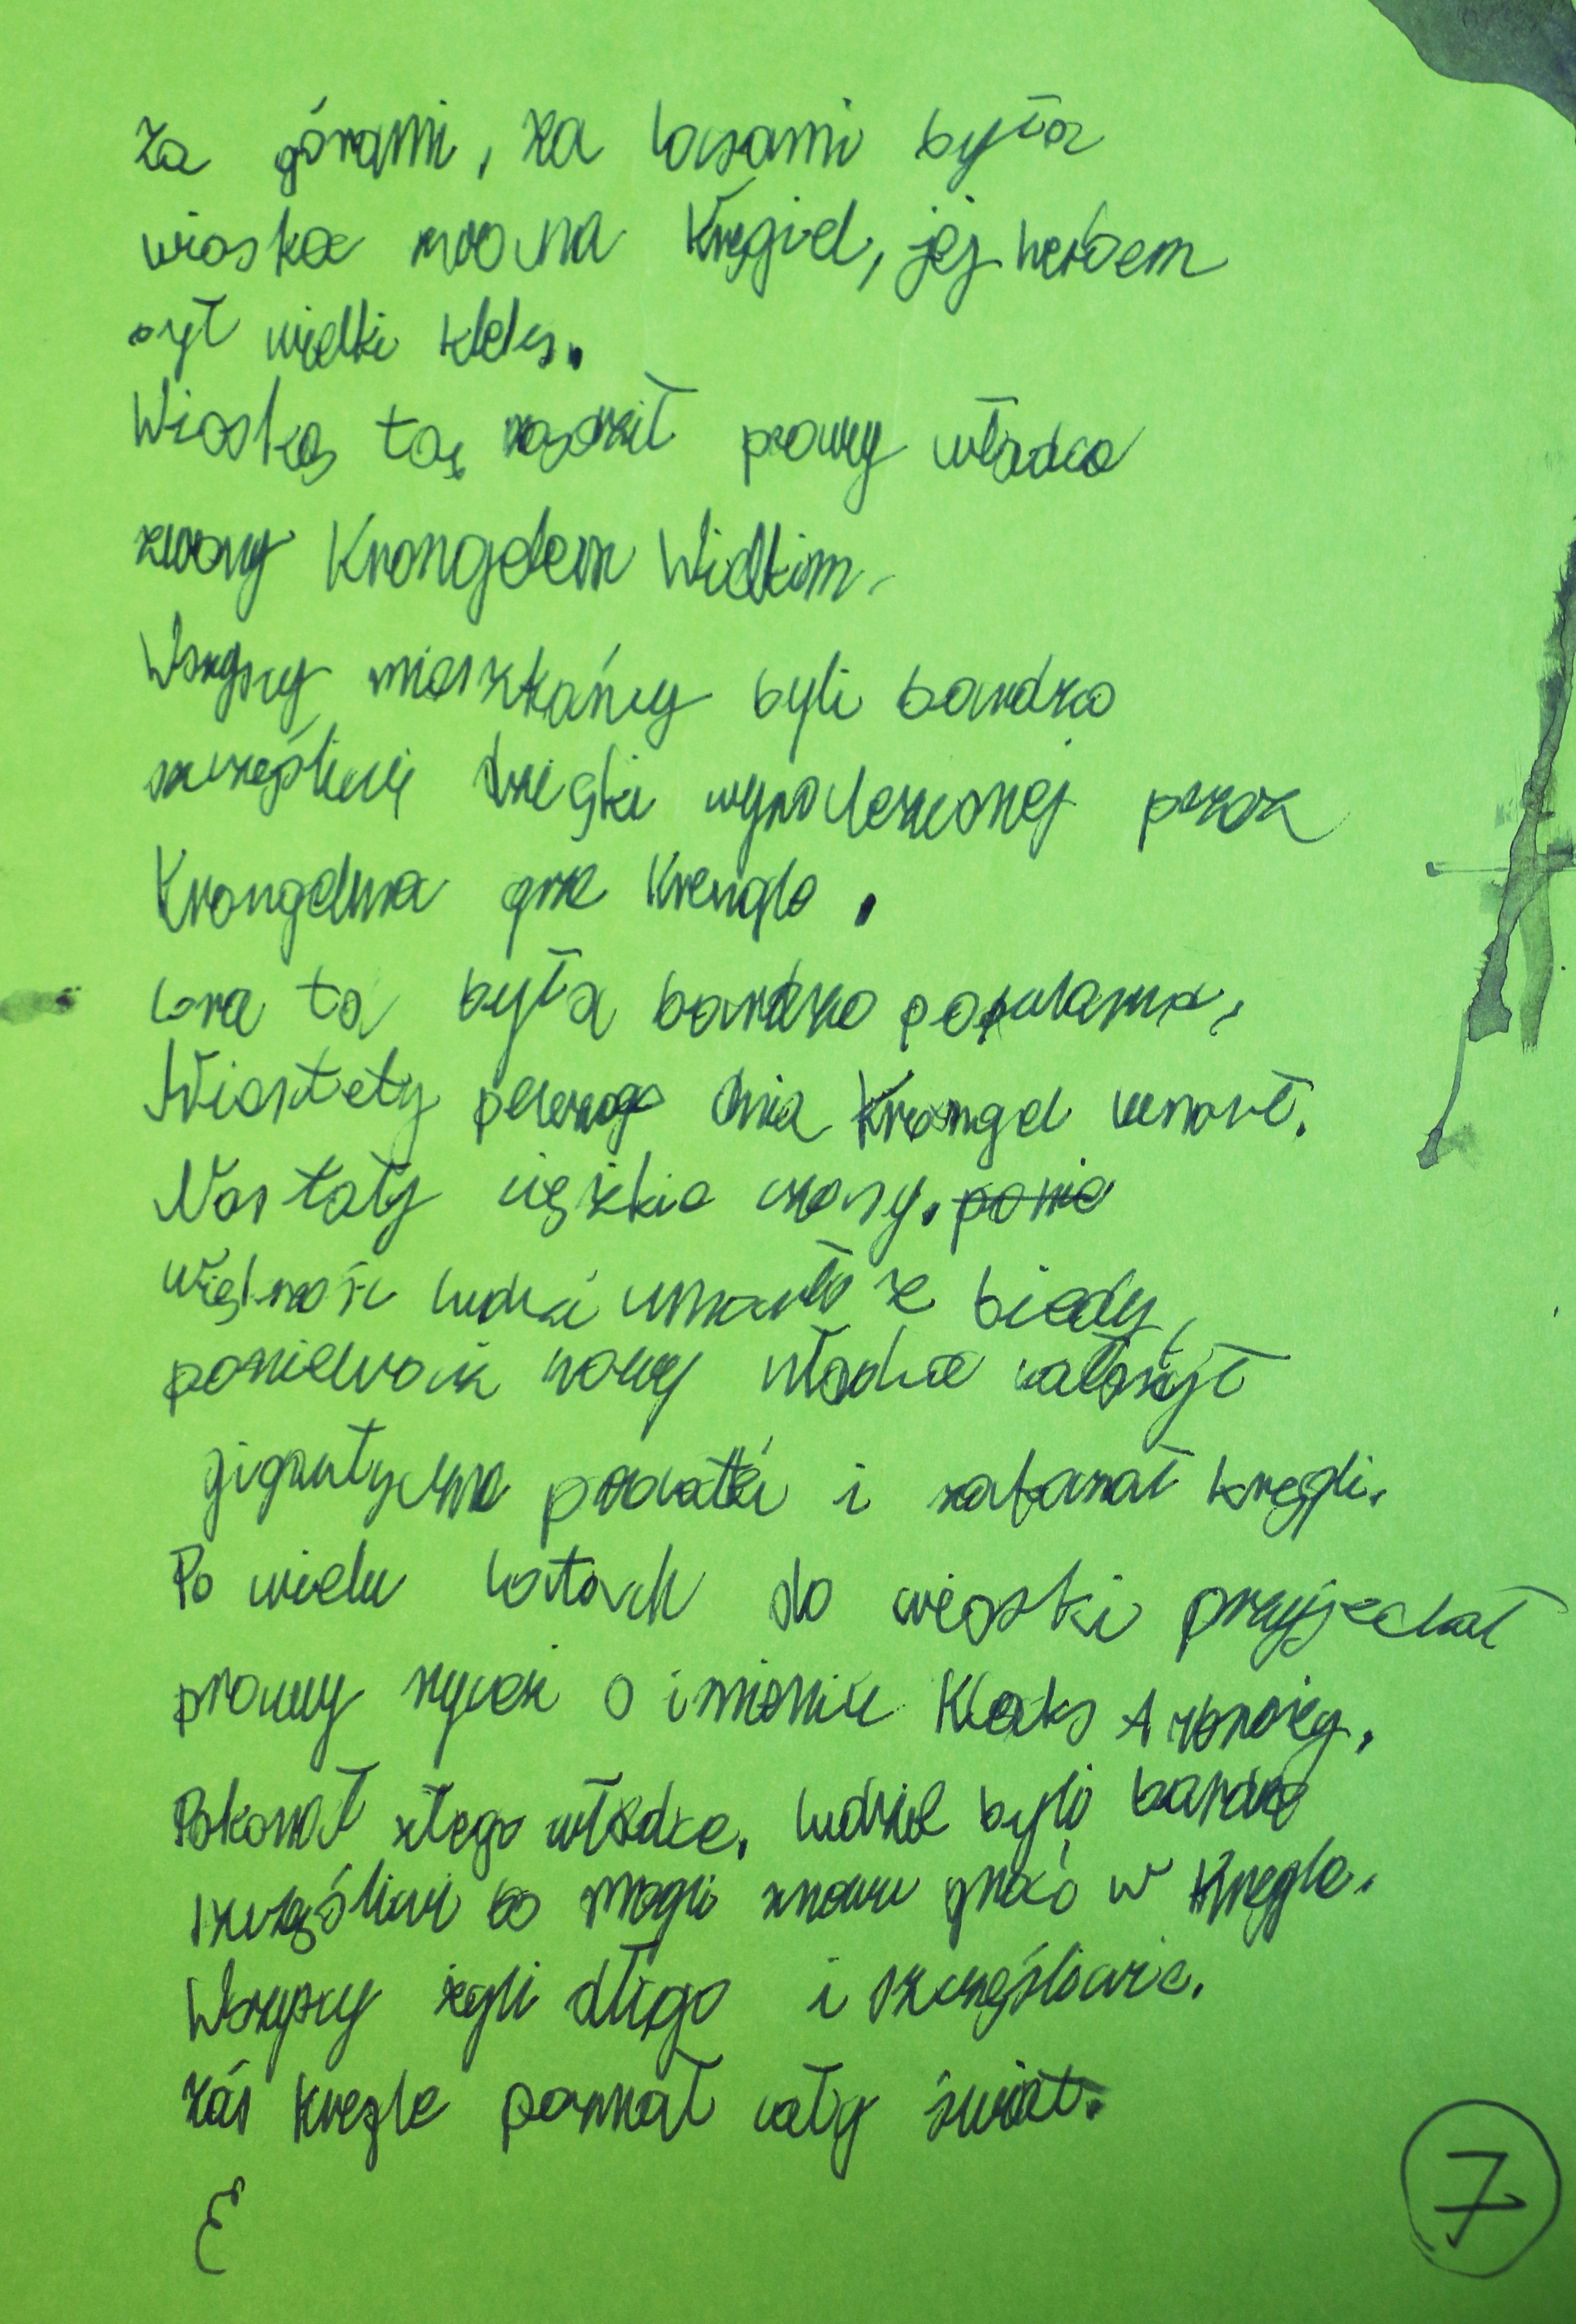 Za górami, za lasami była
wioska zwana Kręgiel, jej herbem
był wielki kleks.
Wioską tą rządził prawy władca
zwany Krongelem Wielkim.
Wszyscy mieszkańcy byli bardzo
szczęśliwi dzięki wynalezionej przez
Krongelma grze Krengle.
Gra ta była bardzo popularna,
Niestety pewnego dnia Krongel umarł.
Nastały ciężkie czasy. ponie
Większość ludzi umarło z biedy,
ponieważ nowy władca nałożył
gigantyczne podatki i zakazał kręgli.
Po wielu latach do wioski przyjechał
prawy rycerz o imieniu Kleks
Pokonał złego władce. Ludzie byli bardzo
szczęśliwi bo mogli znowu grać w Kręgle.
Wszyscy żyli długo i szczęśliwie.
Zaś kręgle poznał cały świat.
E
7